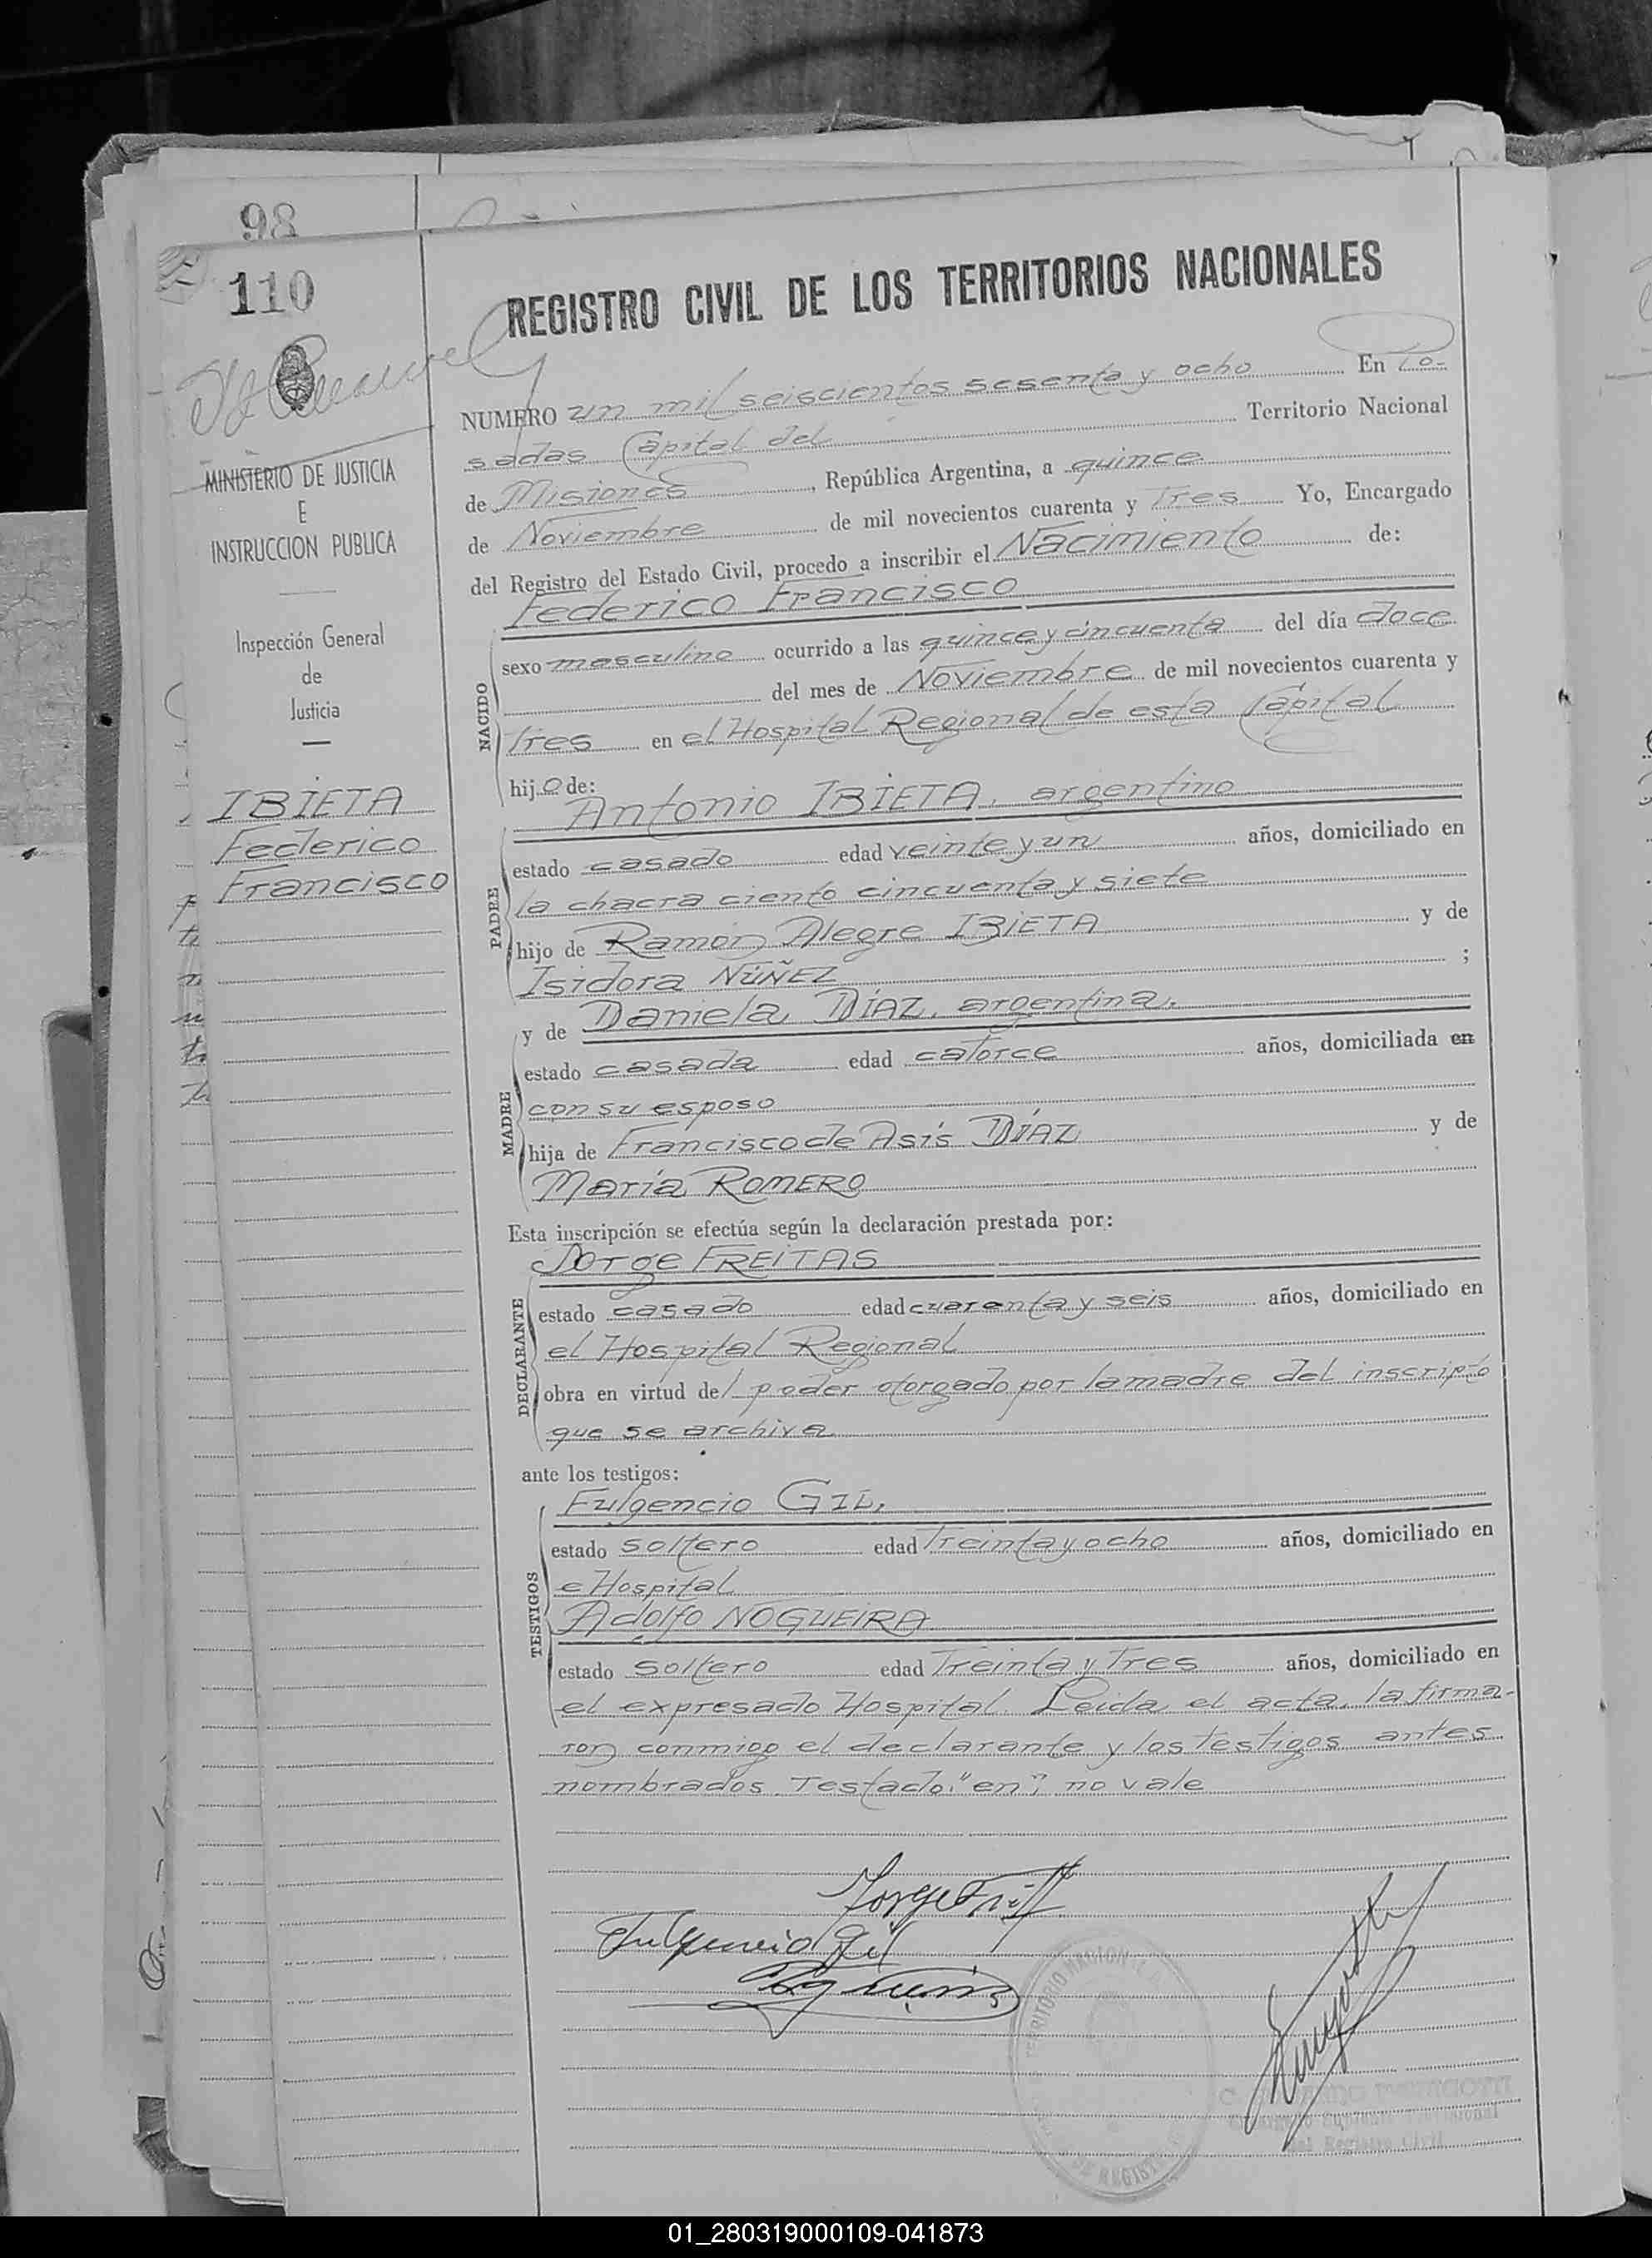 98
110
REGISTRO CIVIL DE LOS TERRITORIOS NACIONALES
MINISTERIO DE JUSTICIA
E
INSTRUCCION PUBLICA
Inspección General
de
Justicia
IBIETA
Federico
Francisco
NUMERO un mil seiscientos sesenta y ocho En Po-
sadas Capital del Territorio Nacional
de Misiones, República Argentina, a quince
de Noviembre de mil novecientos cuarenta y Tres Yo, Encargado
del Registro del Estado Civil, procedo a inscribir el Nacimiento de:
Federico Francisco
NACIDO
sexo masculino ocurrido a las quince y cincuenta del día doce
del mes de Noviembre de mil novecientos cuarenta y
Tres en el Hospital Regional de esta Capital
hijo de:
Antonio IBIETA, argentino
PADRE
estado casado edad veinte y un años, domiciliado en
la chacra ciento cincuenta y siete
hijo de Ramon Alegre IBIETA y de
Isidora NÚÑEZ ;
y de Daniela DÍAZ, argentina.
MADRE
estado casada edad catorce años, domiciliada en
con su esposo
hija de Francisco de Asis DÍAZ y de
María ROMERO
Esta inscripción se efectúa según la declaración prestada por:
Jorge FREITAS
DECLARANTE
estado casado edad cuarenta y seis años, domiciliado en
el Hospital Regional
obra en virtud del poder otorgado por la madre del inscripto
que se archiva
ante los testigos:
Fulgencio GIL,
TESTIGOS
estado soltero edad Treinta y ocho años, domiciliado en
e Hospital
Adolfo NOGUEIRA
estado soltero edad Treinta y Tres años, domiciliado en
el expresado Hospital. Leida el acta, la firma-
ron conmigo el declarante y los testigos antes
nombrados. Testado: "en"; no vale
Fulgencio Gil
del Registro Civil
01_280319000109-041873